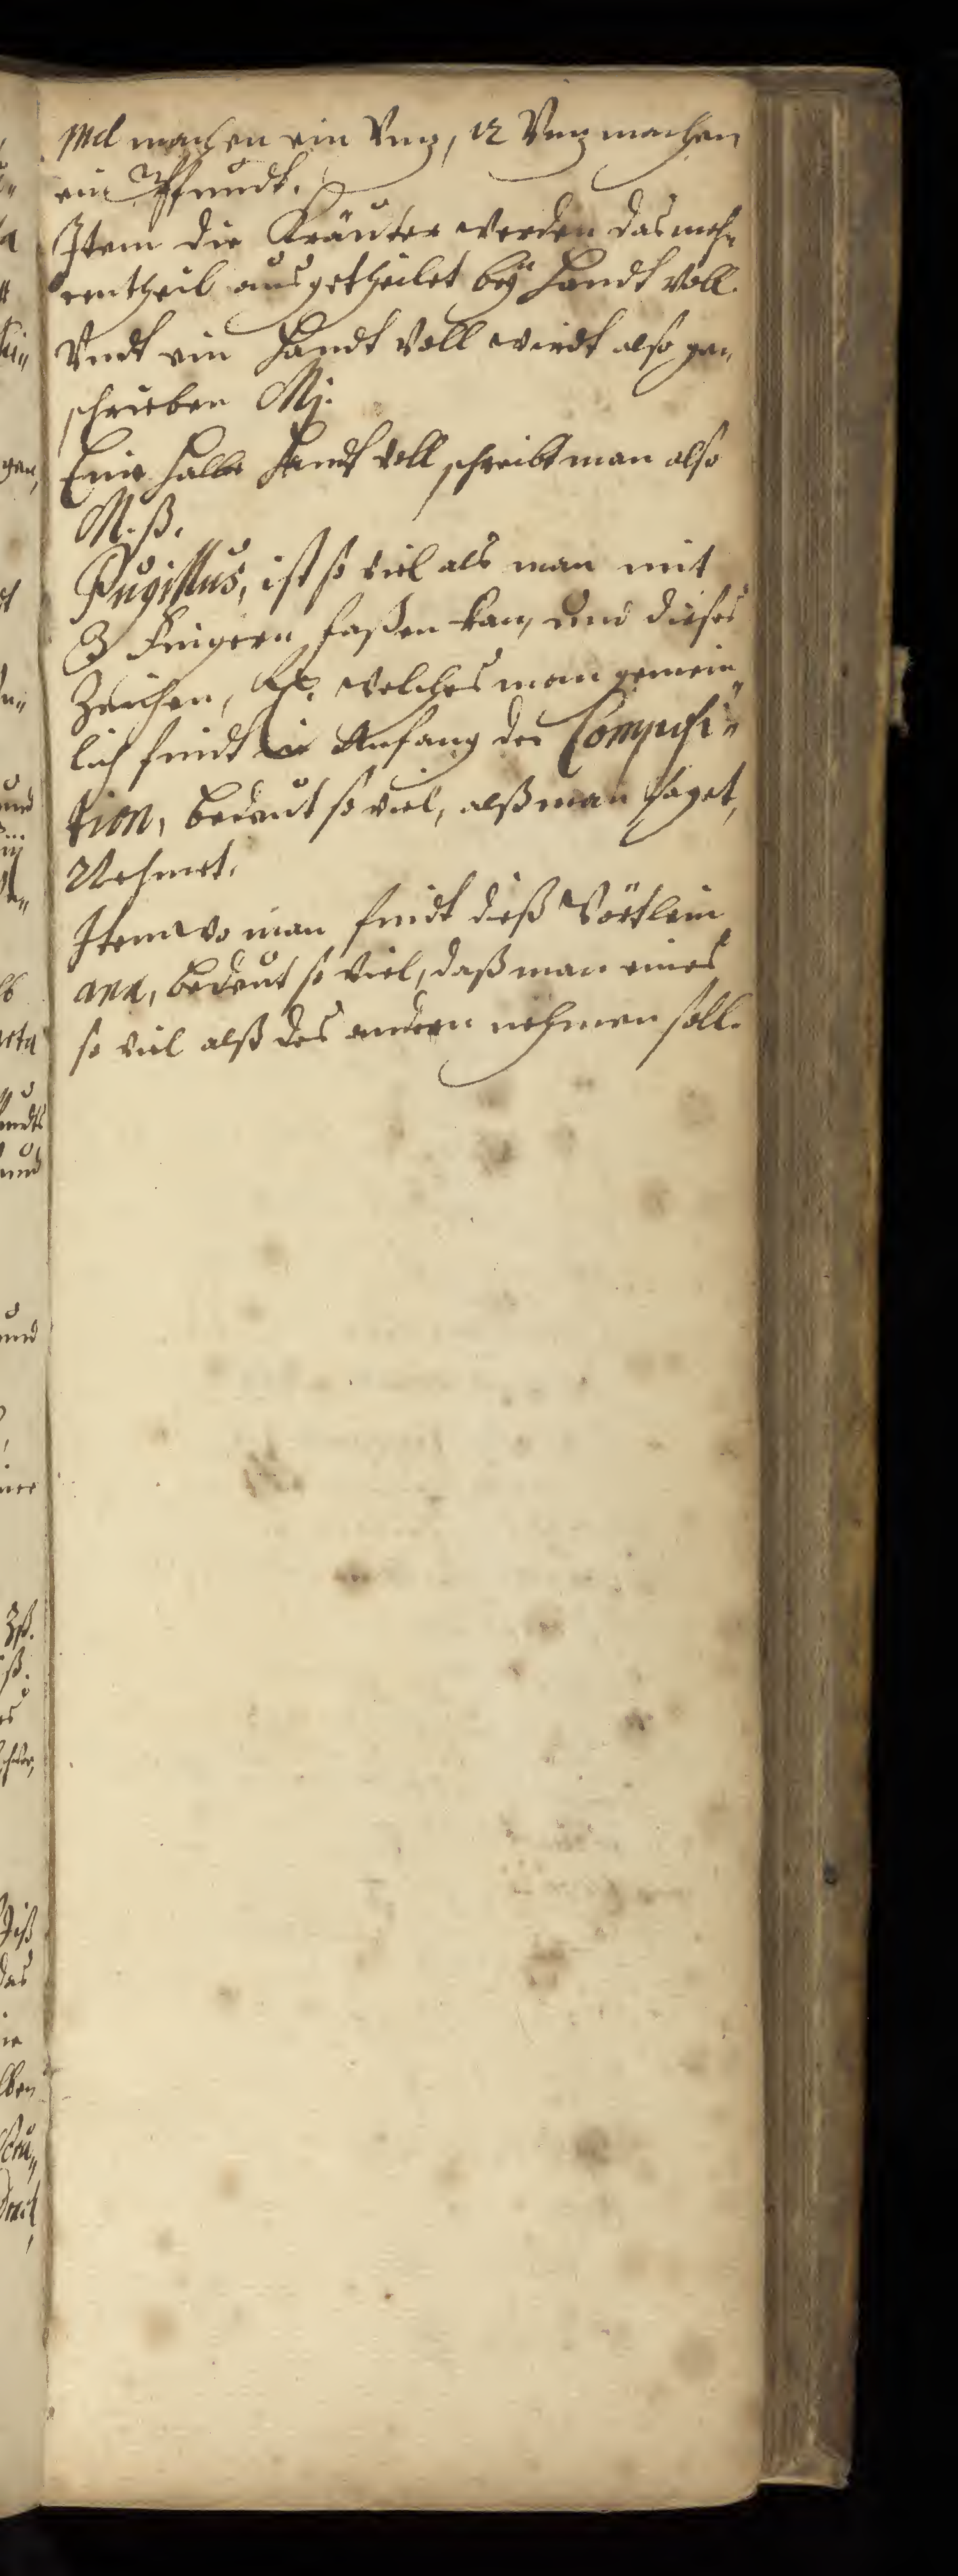 mel machen ein Vnz, 12 Vnz machen
ein Pfundt.
Item die Kräuter werden das meh„
rentheil ausgetheilet beÿ Handt voll.
Vndt ein Handt Voll wirdt also ge„
schrieben Mj.
Eine halbe Handt voll schreibt man also
M. ß.
Pugillus, ist so viel als man mit
3 Fingern faßen kan, und dieses
Zeichen, ℞. welches man gemein„
lich findt in Anfang der Composi„
tion, bedeut so viel, alß man saget,
Nehmet.
Item wo man findt dieß Wörtlein
ana, bedeut so viel, daß man eines
so viel alß des andern nehmen soll.